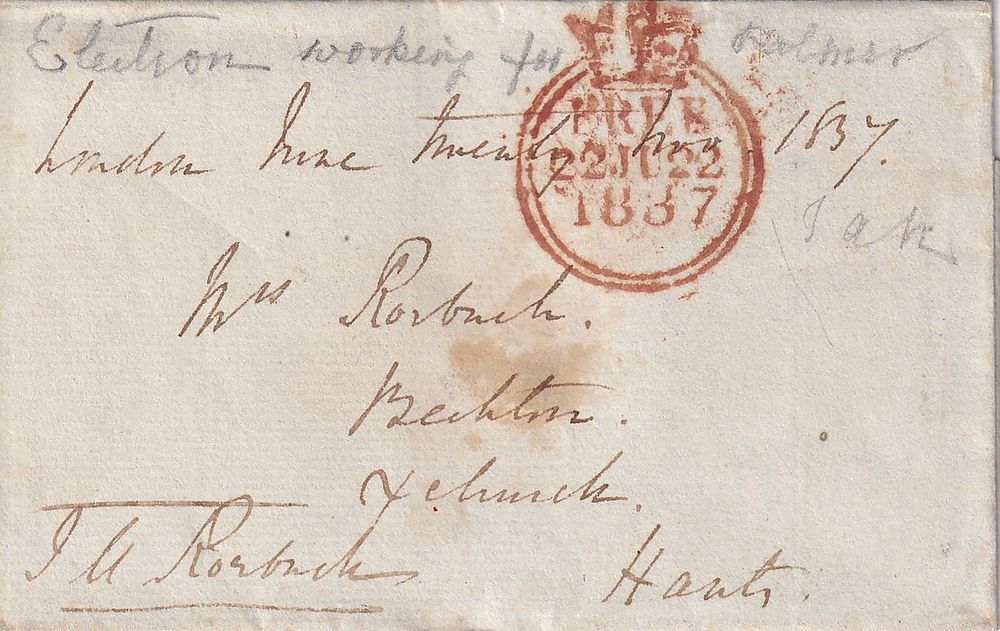 Election working for Palmer
London June twenty two. 1837.
FREE
22JU22
1837
Mrs Roebuck.
Beckton.
Xchurch.
J A Roebuck
Hants.